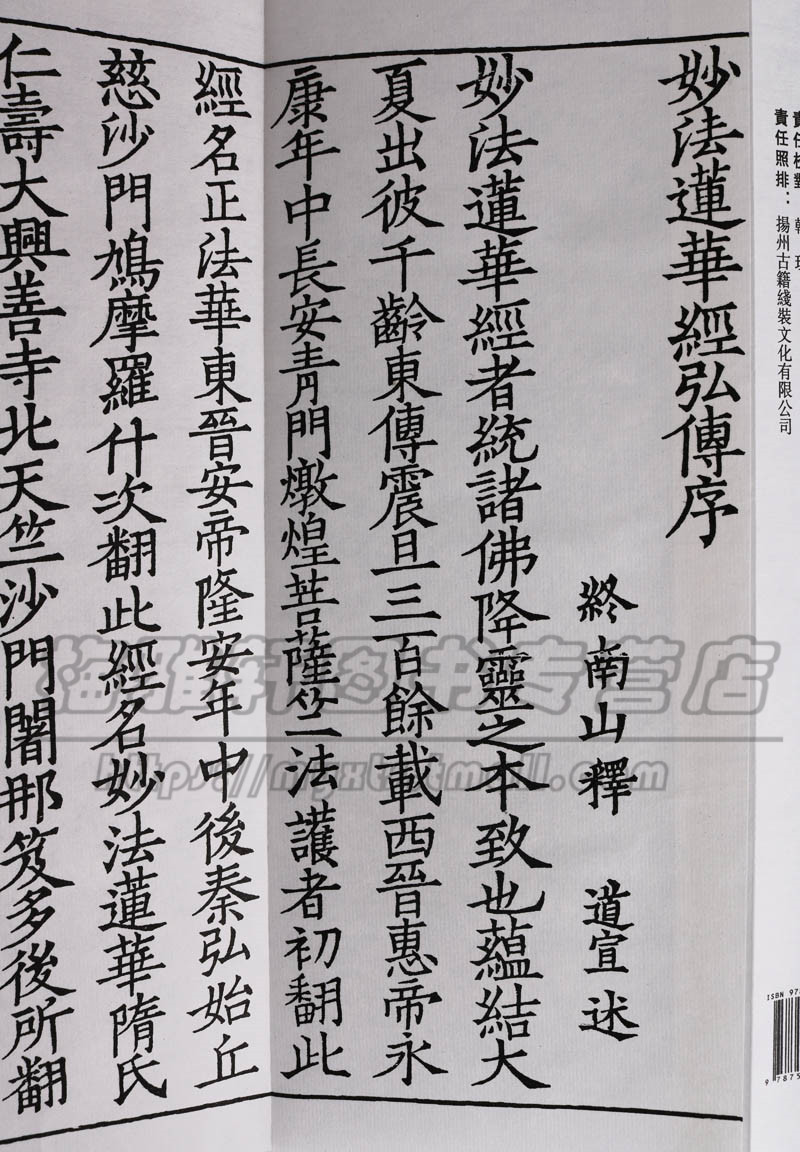 責任照排：揚州古籍綫裝文化有限公司
妙法蓮華經弘傳序
終南山釋 道宣 述
妙法蓮華經者統諸佛降靈之本致也蘊結大
夏出彼千齡東傳震旦三百餘載西晉惠帝永
康年中長安青門燉煌菩薩竺法護者初翻此
經名正法華東晉安帝隆安年中後秦弘始丘
慈沙門鳩摩羅什次翻此經名妙法蓮華隋氏
仁壽大興善寺北天竺沙門闍那笈多後所翻
ISBN 97
9 7875